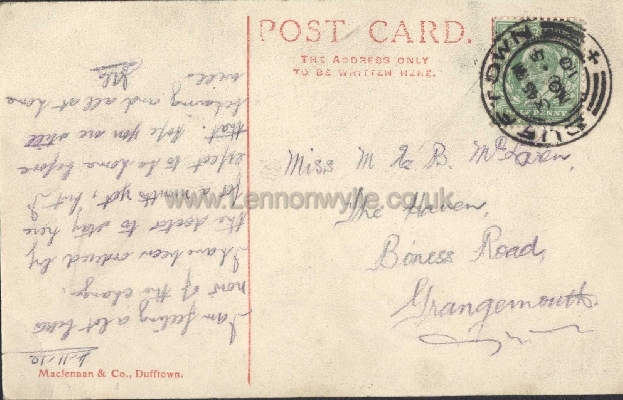 POST CARD.
THE ADDRESS ONLY
TO BE WRITTEN HERE.
DUFFTOWN
NO 5
10
PENNY
Miss M & B. McLaren,
The Haven,
Boness Road,
Grangemouth.
www.Lennonwylie.co.uk
5-11-10
I am feeling a lot better
now of the change.
I have been ordered by
the doctor to stay here
for a month yet, but I
expect to be home before
that. hope you are still
keeping and all at home
well.
Maclennan & Co., Dufftown.